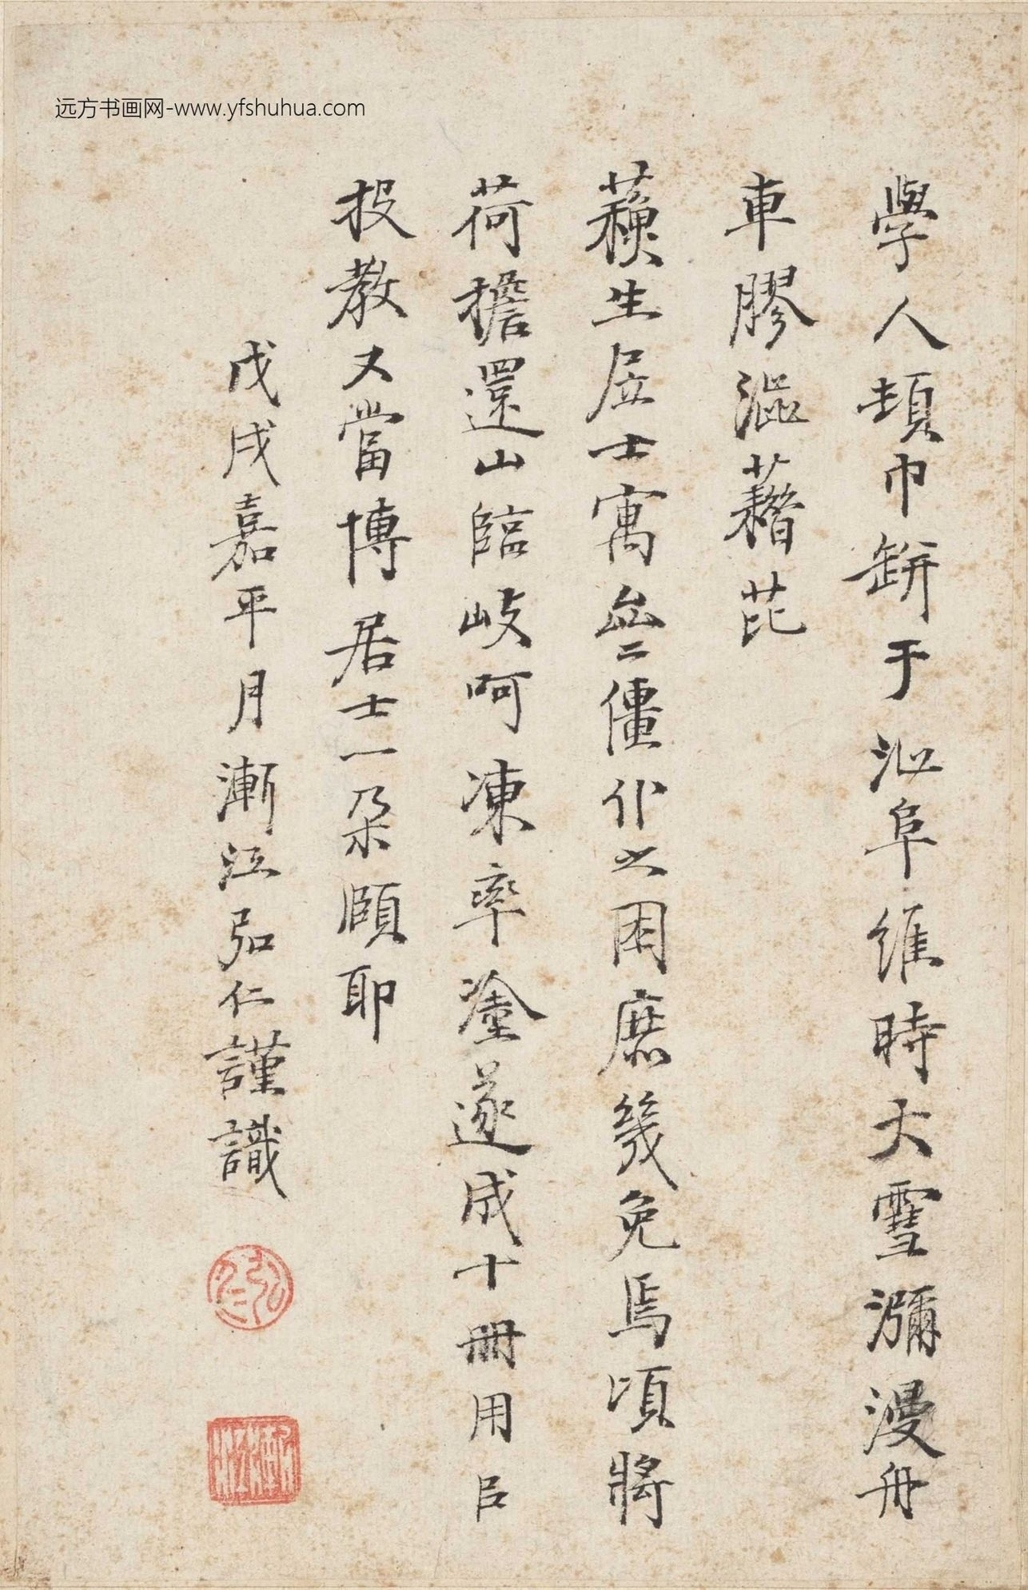 远方书画网-www.yfshuhua.com
學人頓巾缾于沁阜維時大雪瀰漫舟
車膠澁藉芘
蘓生居士寓叄二僵仆之困庶幾免焉頃將
荷擔還山臨岐呵凍率塗遂成十冊用㠯
投教又當博居士一朶頤耶
戊戌嘉平月漸江弘仁謹識
弘仁
漸江